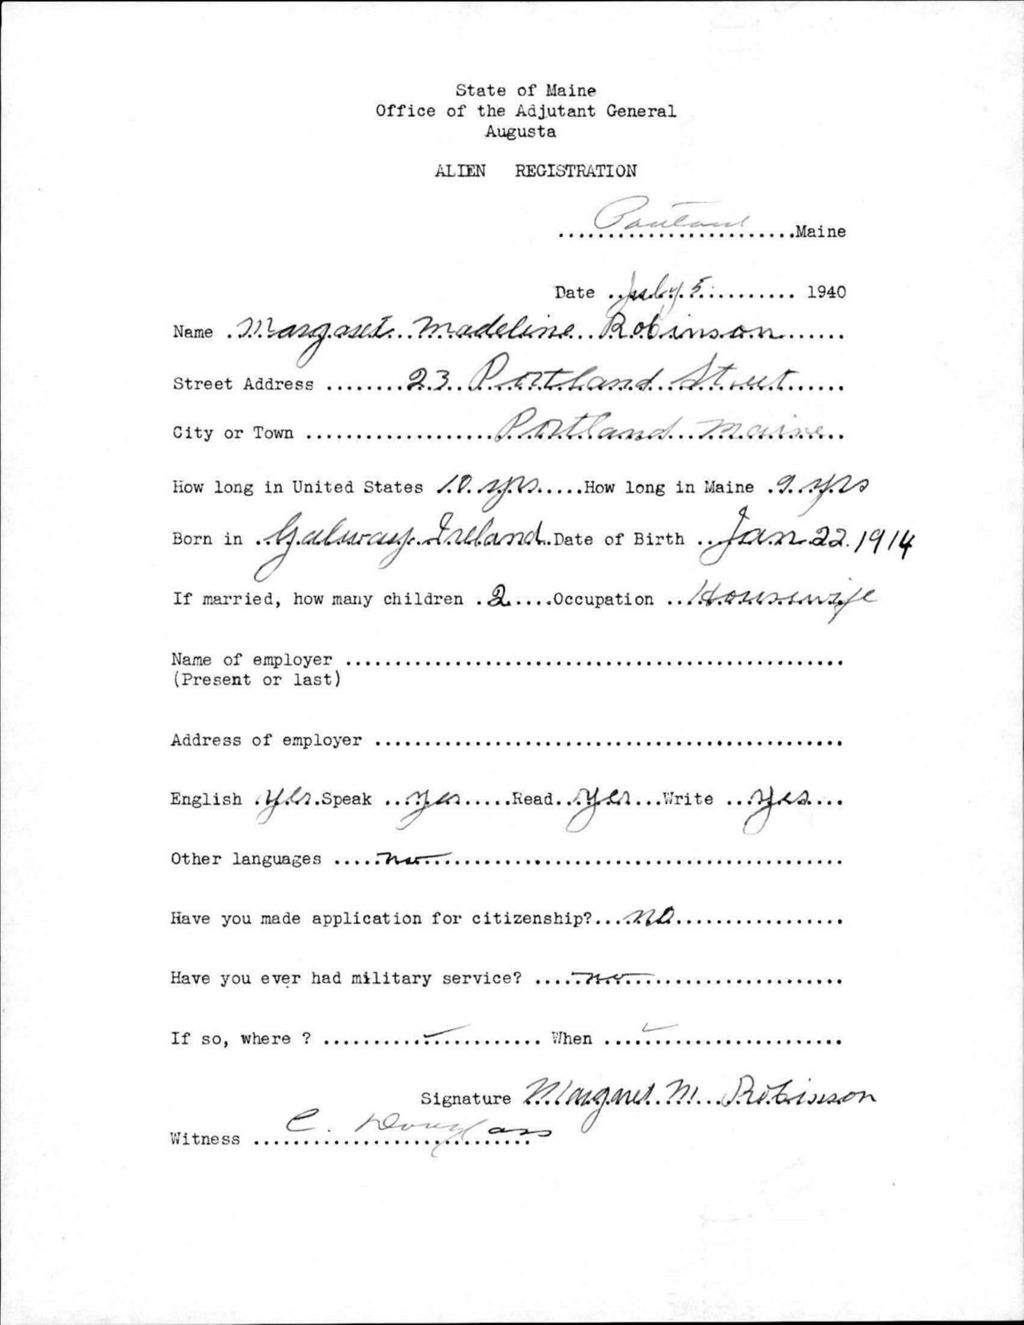 State of Maine
Office of the Adjutant General
Augusta
ALIEN REGISTRATION
Portland Maine
Date July 5 1940
Name Margaret Madeline Robinson
Street Address 23 Portland Street
City or Town Portland Maine
How long in United States 10 yrs How long in Maine 9 yrs
Born in Galway Ireland Date of Birth Jan 22. 1914
If married, how many children 2 Occupation Housewife
Name of employer
(Present or last)
Address of employer
English yes Speak yes Read yes Write yes
Other languages no
Have you made application for citizenship? no
Have you ever had military service? no
If so, where ? When
Signature Margaret M. Robinson
Witness C. Douglass